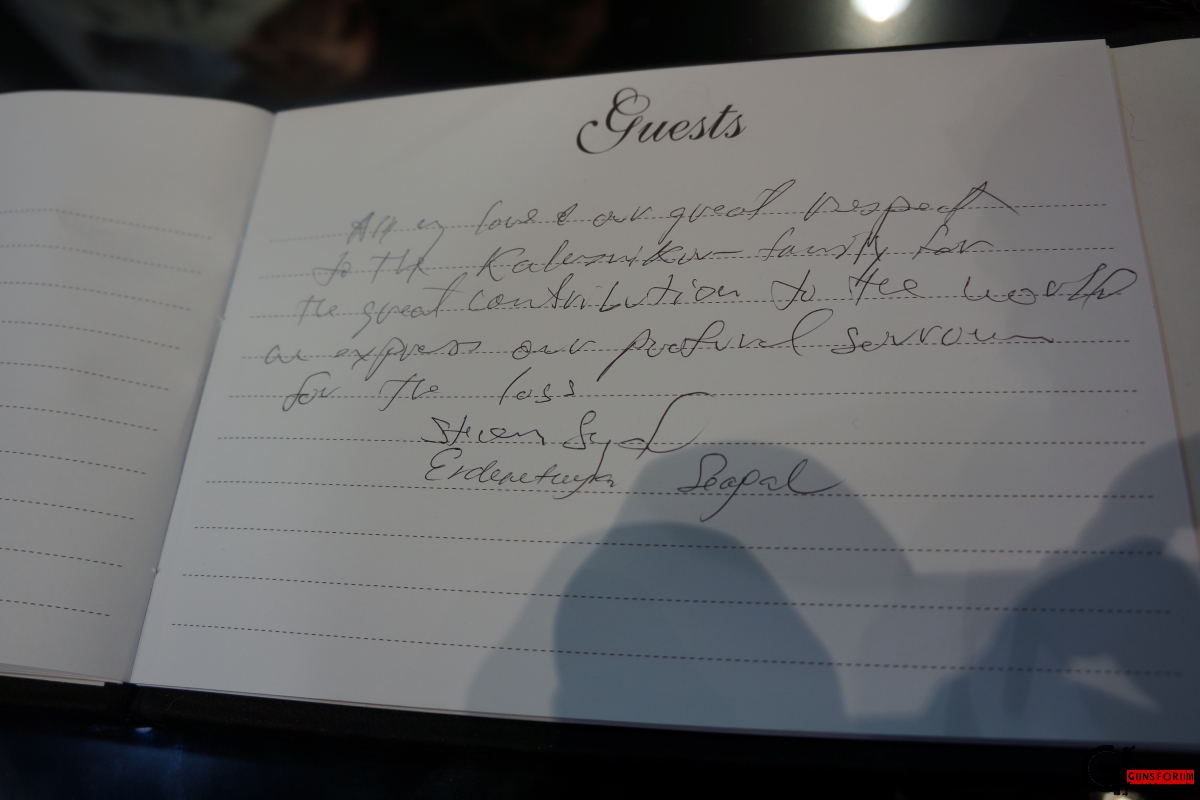 Guests
All my love & our great respect
to the Kalasnikov family for
the great contribution to the world
we express our profound sorrow
for the loss
Steven Segal
Erdenetuya Seagal
GUNSFORUM